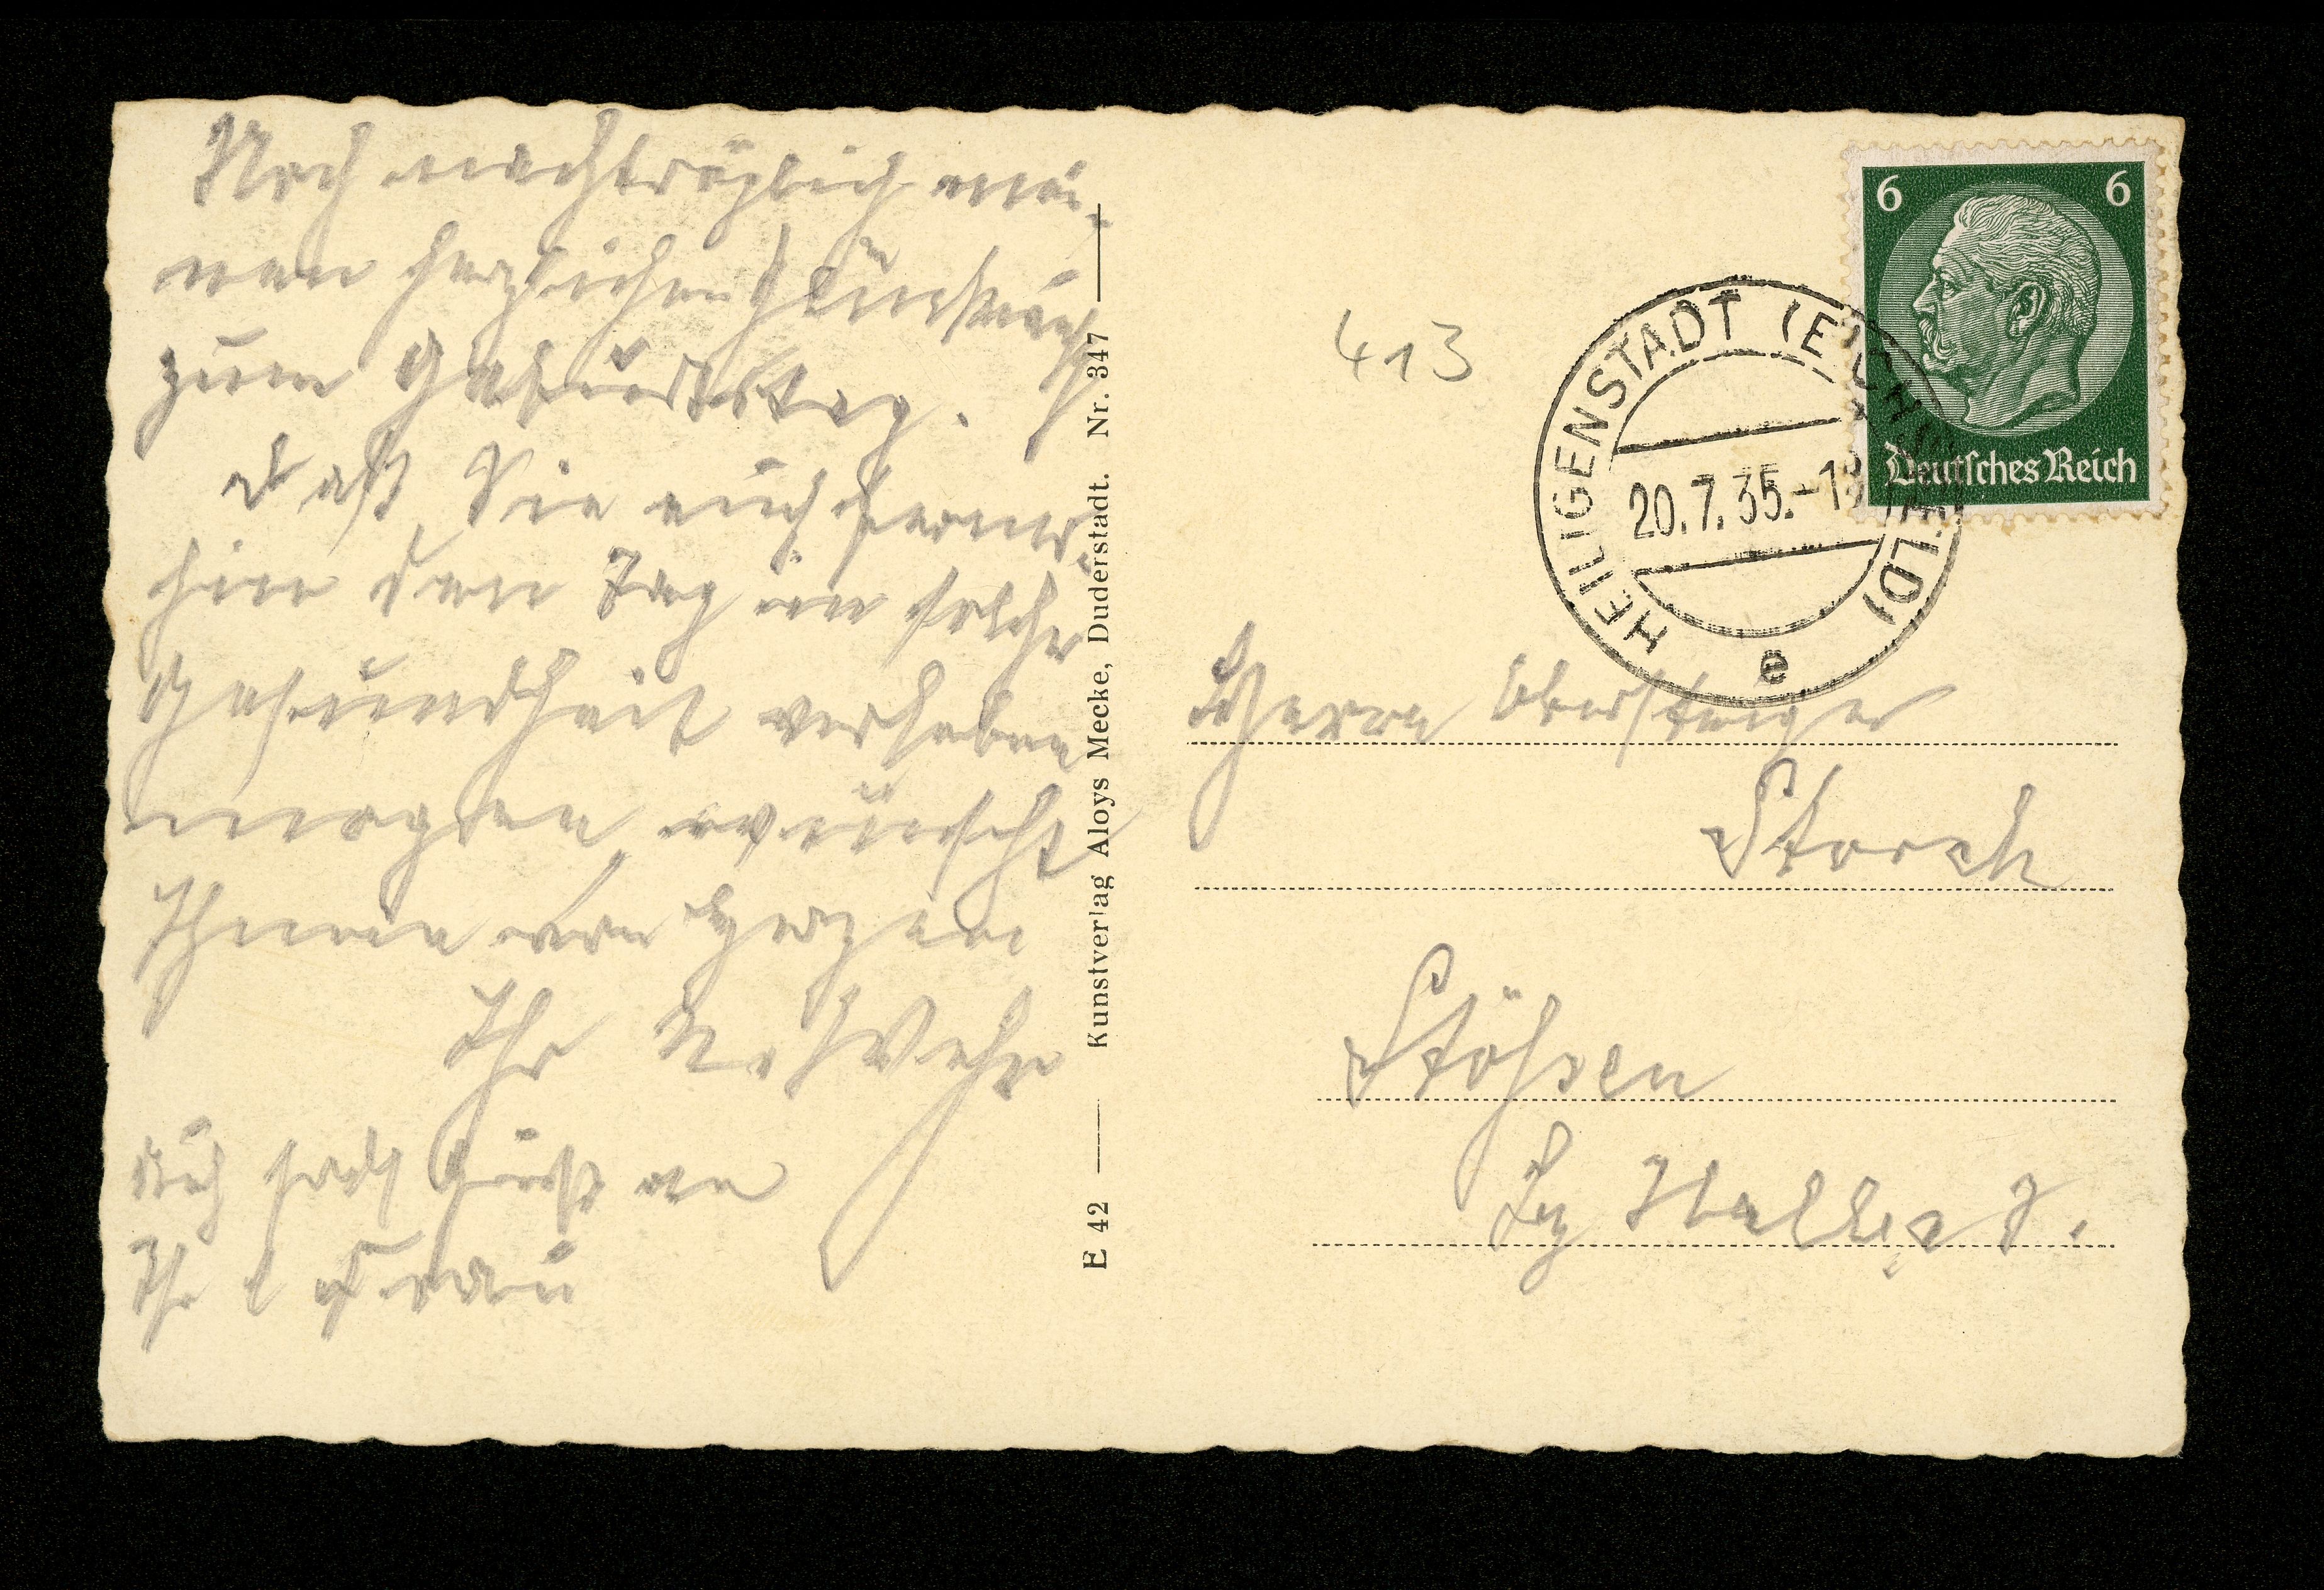 Noch nachträglich mei-
nen herzlichen Glückwunsch
zum Geburtstag.
daß Sie auch fernerhin
den Tag in solcher
Gesundheit verleben
mögen, wünscht
Ihnen von Herzen
Ihr
Gruß an
Ihre Frau
E 42 Kunstverlag Aloys Mecke, Duderstadt. Nr. 347
6 6
Deutsches Reich
HEILIGENSTADT (EICHSFELD)
20.7.35.-1
e
413
Herrn Obersteiger
Storch
Stöhsen